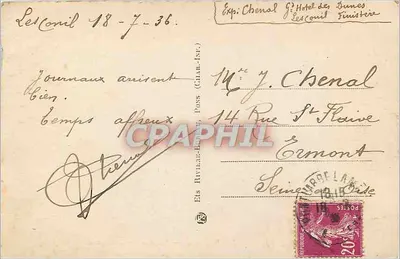 Lesconil 18-7-36.
Exp: Chenal Gd Hotel des Dunes
Lesconil Finistère
Journaux arrivent
bien.
Temps affreux
Chenal
Mr J. Chenal
14 Rue St Flaive
Ermont
Seine Oise
CPAPHIL
Ets Bivilie-Bujeau, Pons (Char.-Inf.)
PONT L'ABBE
18
POSTES
20